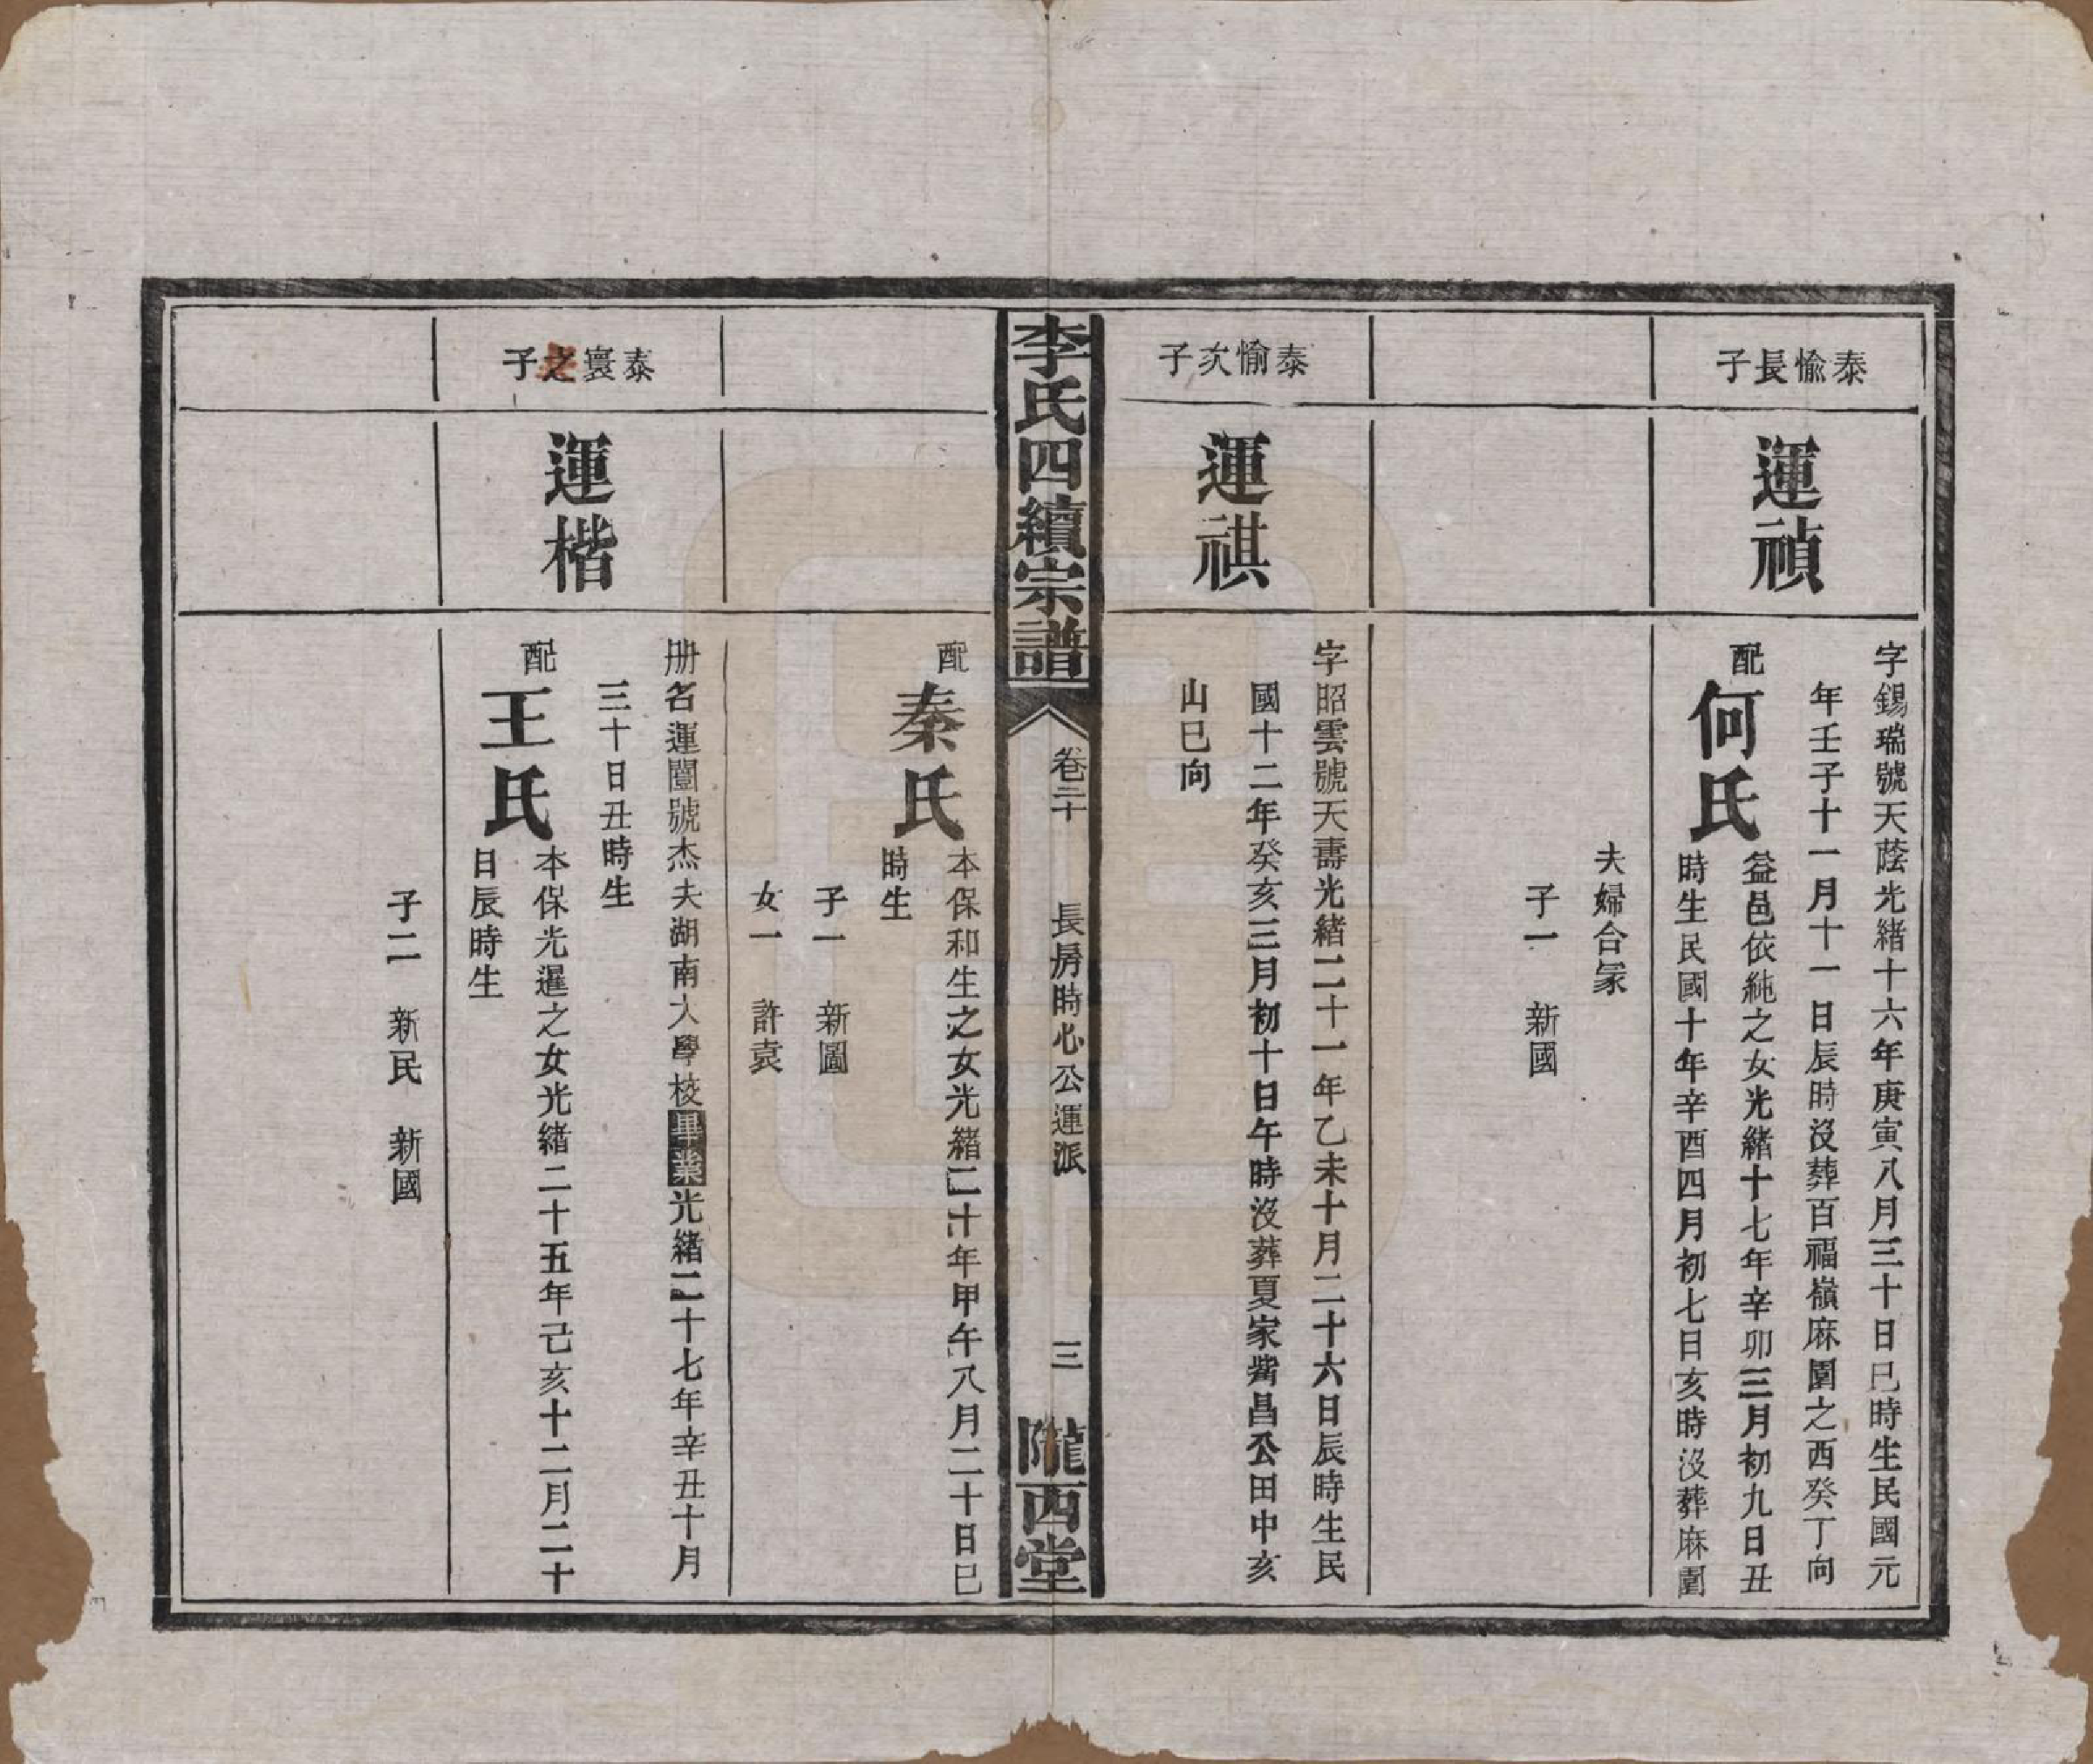 泰愉長子
運禎
字錫瑞號天蔭光緒十六年庚寅八月三十日巳時生民國元
年壬子十一月十一日辰時沒葬百福嶺麻園之西癸丁向
配何氏
益邑依純之女光緒十七年辛卯三月初九日丑
時生民國十年辛酉四月初七日亥時沒葬麻園
夫婦合冡
子一 新國
泰愉次子
運祺
字昭雲號天壽光緒二十一年乙未十月二十六日辰時生民
國十二年癸亥三月初十日午時沒葬夏家嘴昌公田中亥
山巳向
李氏四續宗譜
卷二十 長房時心公運派 三
隴西堂
配秦氏
本保和生之女光緒二十年甲午八月二十日巳
時生
子一 新圖
女一 許袁
泰寰之子
運楷
册名運闓號杰夫湖南大學校畢業光緒二十七年辛丑十月
三十日丑時生
配王氏
本保光暹之女光緒二十五年己亥十二月二十
日辰時生
子二 新民 新國